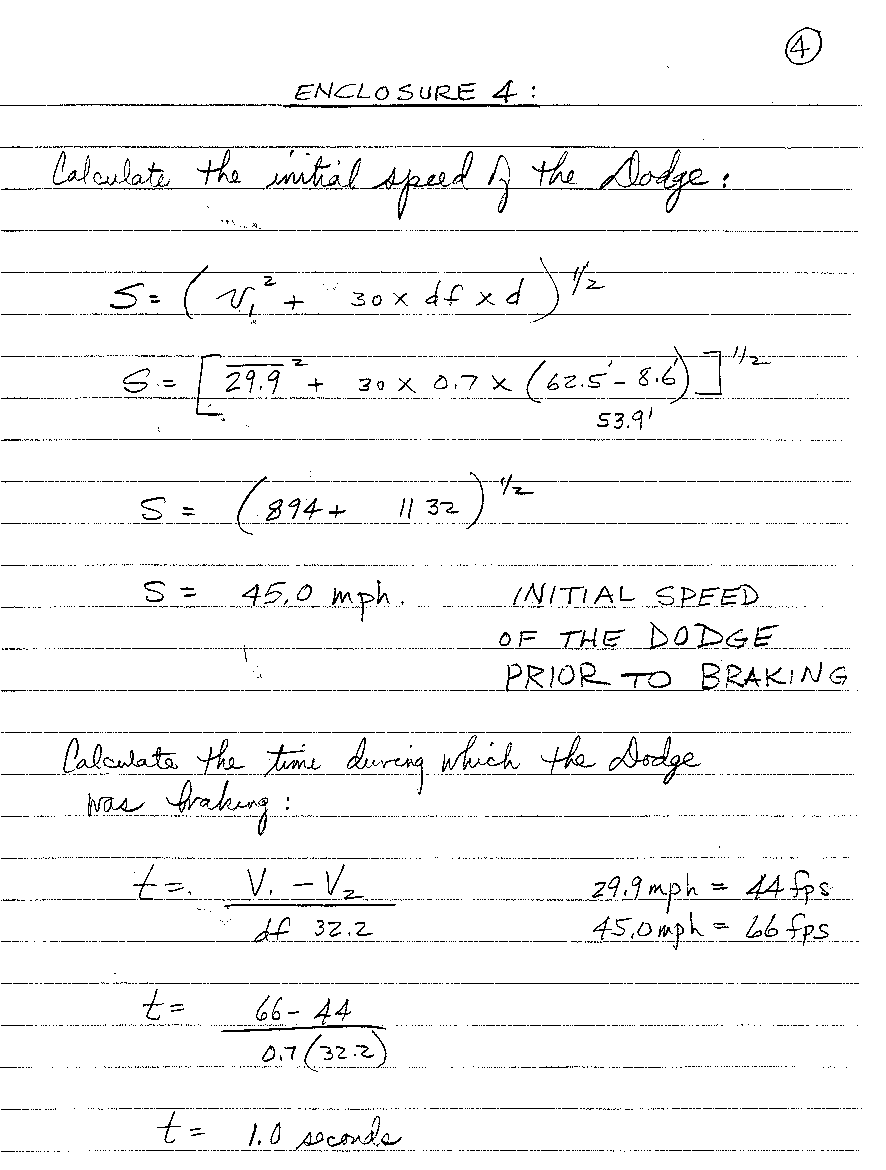 4
ENCLOSURE 4 :
Calculate the initial speed of the Dodge :
S = ( v₁² + 30 x df x d )^1/2
S = [ 29.9² + 30 x 0.7 x (62.5' - 8.6') ]^1/2
53.9'
S = ( 894 + 1132 )^1/2
S = 45.0 mph. INITIAL SPEED
OF THE DODGE
PRIOR TO BRAKING
Calculate the time during which the Dodge
was braking :
t = V₁ - V₂ 29.9 mph = 44 fps
df 32.2 45.0 mph = 66 fps
t = 66 - 44
0.7 (32.2)
t = 1.0 seconds